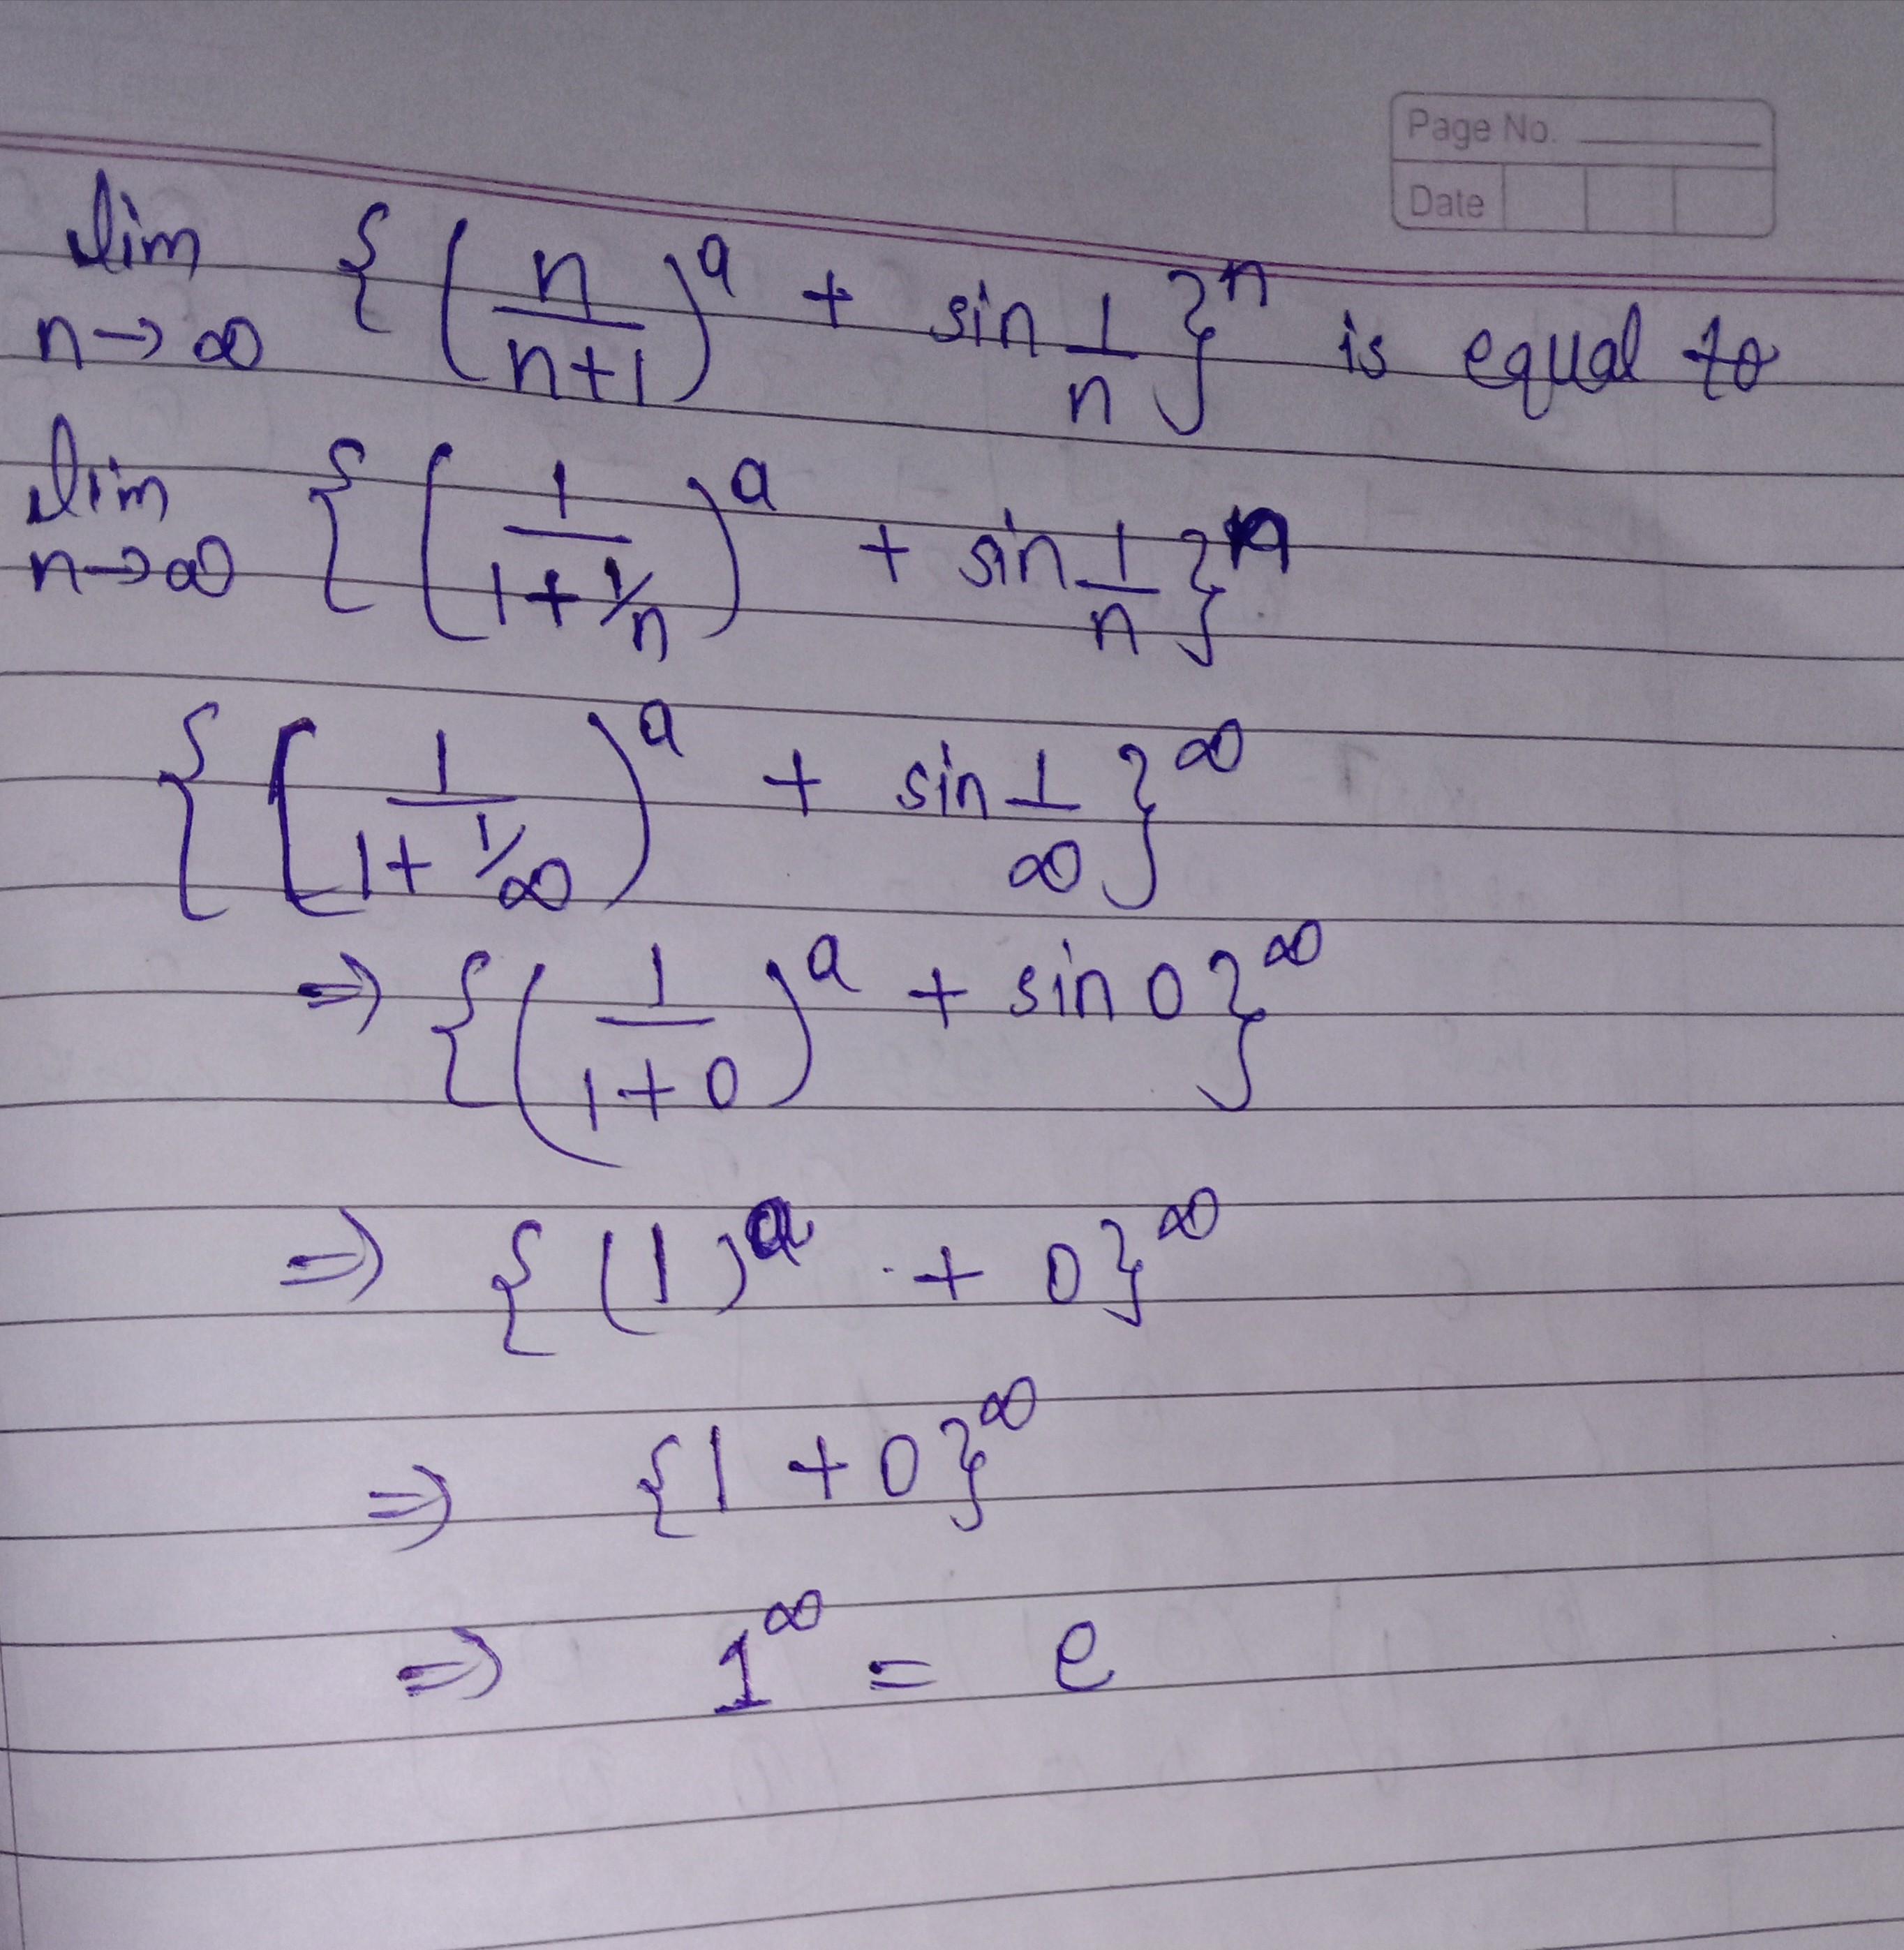 Page No.
Date
lim n→∞ { ( n/(n+1) )^a + sin 1/n }^n is equal to
lim n→∞ { ( 1/(1+1/n) )^a + sin 1/n }^n
{ ( 1/(1+1/∞) )^a + sin 1/∞ }^∞
⇒ { ( 1/(1+0) )^a + sin 0 }^∞
⇒ { (1)^a + 0 }^∞
⇒ { 1 + 0 }^∞
⇒ 1^∞ = e